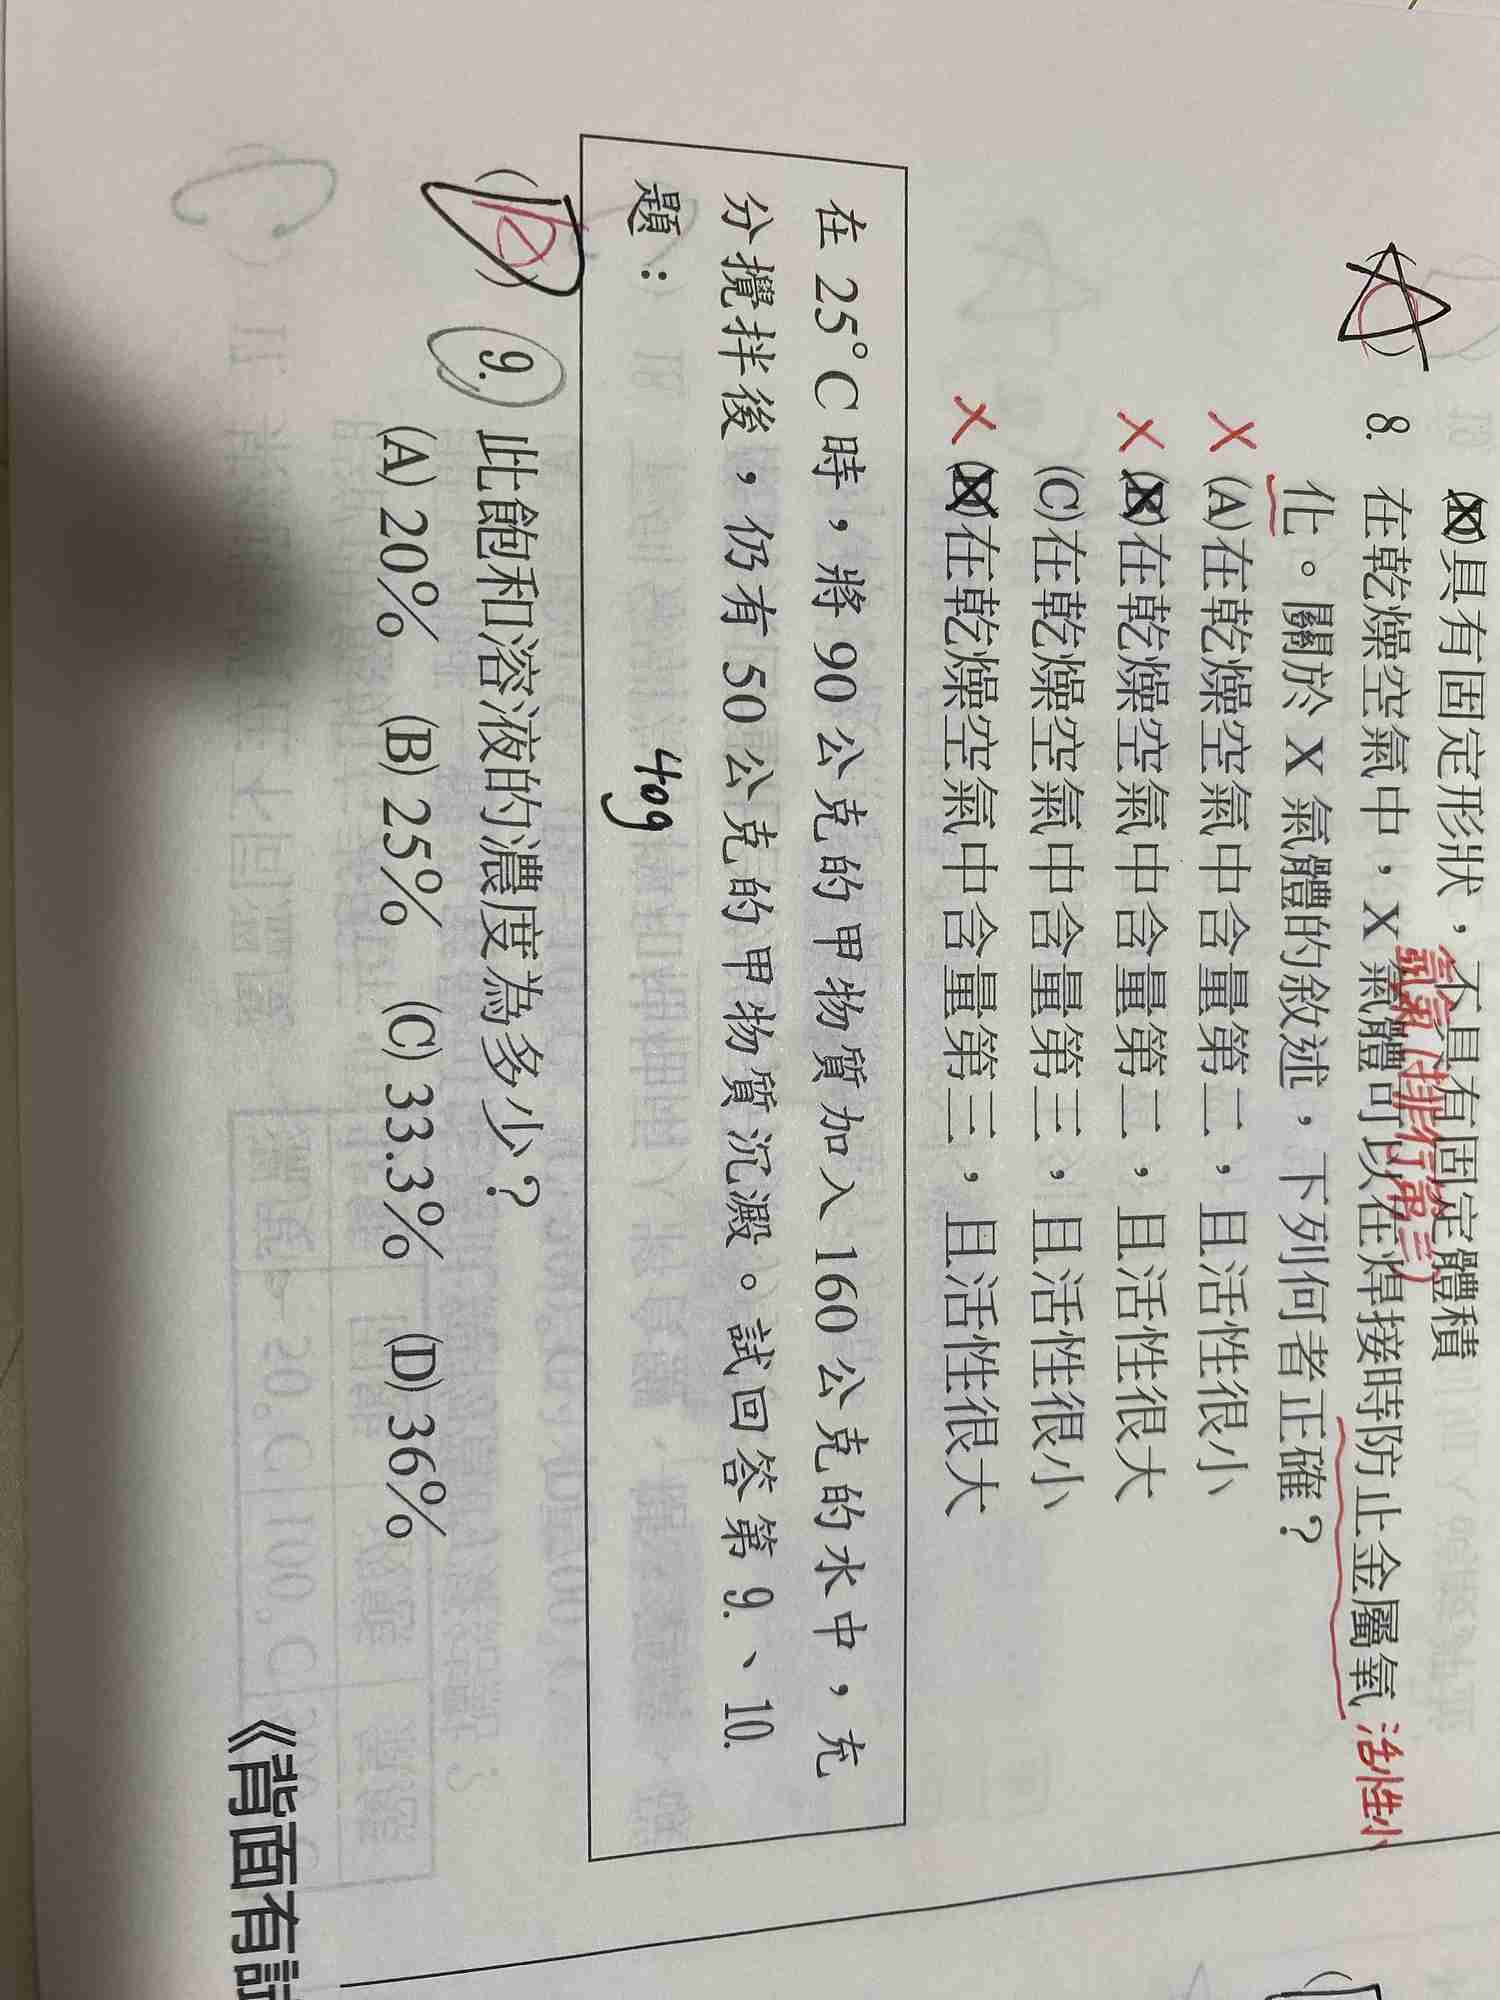 (D)具有固定形狀，不具有固定體積
氬氣(排行第三)
8. 在乾燥空氣中，X 氣體可以在焊接時防止金屬氧 活性小
化。關於 X 氣體的敘述，下列何者正確？
(A)在乾燥空氣中含量第二，且活性很小
(B)在乾燥空氣中含量第二，且活性很大
(C)在乾燥空氣中含量第三，且活性很小
(D)在乾燥空氣中含量第三，且活性很大
在 25°C 時，將 90 公克的甲物質加入 160 公克的水中，充
分攪拌後，仍有 50 公克的甲物質沉澱。試回答第 9.、10.
題：
40g
9. 此飽和溶液的濃度為多少？
(A) 20% (B) 25% (C) 33.3% (D) 36%
《背面有試